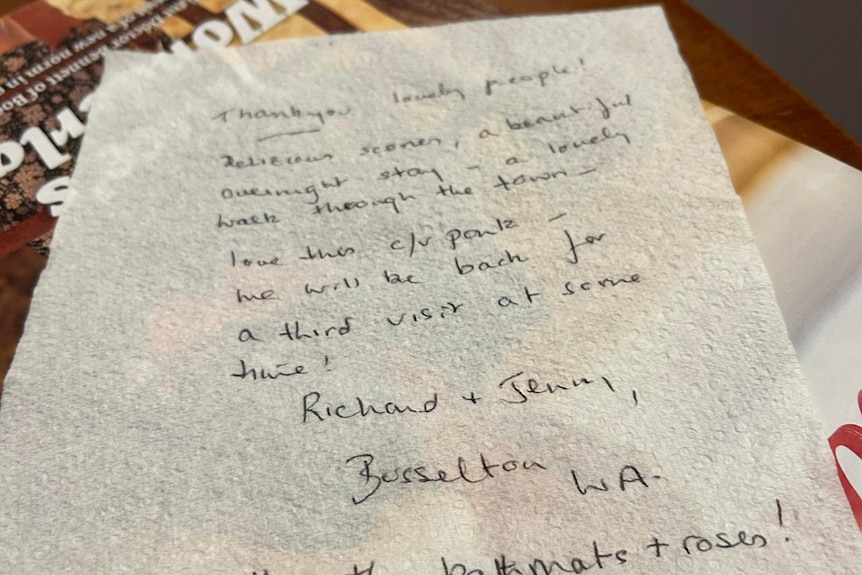 Thankyou lovely people!
Delicious scones, a beautiful
overnight stay - a lovely
walk through the town -
love this c/v park -
we will be back for
a third visit at some
time!
Richard + Jenny,
Busselton WA.
bathmats + roses!